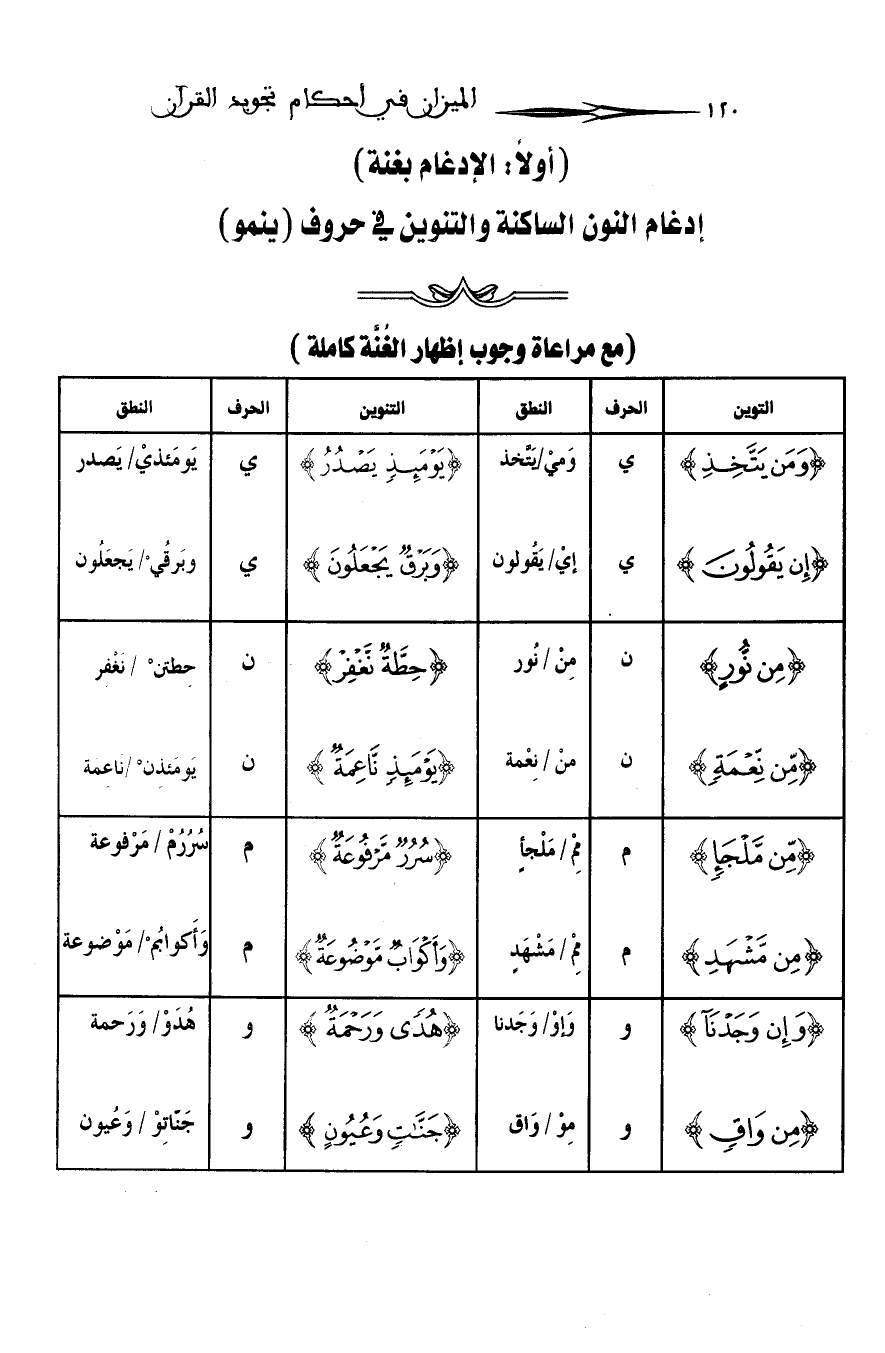 ١٢٠ الميزان في أحكام تجويد القرآن
(أولاً: الإدغام بغنة)
إدغام النون الساكنة والتنوين في حروف (ينمو)
(مع مراعاة وجوب إظهار الغُنَّة كاملة )
التوين الحرف النطق التنوين الحرف النطق
﴿وَمَن يَتَّخِذِ﴾ ي وَميْ/يَتَّخذ ﴿يَوْمَئِذٍ يَصْدُرُ﴾ ي يَومَئذيْ/ يَصدر
﴿إِن يَقُولُونَ﴾ ي إيْ/ يَقُولون ﴿وَبَرْقٌ يَجْعَلُونَ﴾ ي وبَرقُيْ/ يَجعَلُون
﴿مِن نُّورٍ﴾ ن مِنْ/ نُور ﴿حِطَّةٌ نَّغْفِرْ﴾ ن حِطتنْ / نَغْفِر
﴿مِّن نِّعْمَةٍ﴾ ن منْ/ نِعْمة ﴿يَوْمَئِذٍ نَّاعِمَةٌ﴾ ن يَومَئِذنْ/ناعِمة
﴿مِّن مَّلْجَإٍ﴾ م مِمْ/ مَلْجأٍ ﴿سُرُرٌ مَّرْفُوعَةٌ﴾ م سُرُرُمْ/ مَرْفوعة
﴿مِن مَّشْهَدِ﴾ م مِمْ/ مَشْهَدِ ﴿وَأَكْوَابٌ مَّوْضُوعَةٌ﴾ م وَأَكوابُمْ/ مَوْضوعة
﴿وَإِن وَجَدْنَآ﴾ و وَإوْ/ وَجَدنا ﴿هُدًى وَرَحْمَةٌ﴾ و هُدَوْ/ وَرَحمة
﴿مِن وَاقٍ﴾ و مِوْ/ وَاق ﴿جَنَّاتٍ وَعُيُونٍ﴾ و جَنّاتِوْ/ وَعُيون